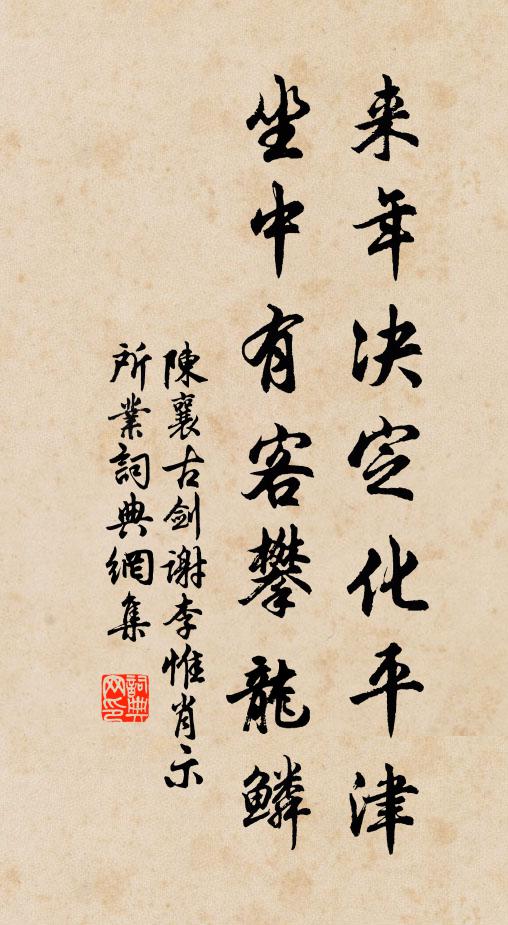 来年决定化平津
坐中有客攀龍鱗
陳襄古劍謝李惟肖示
所業詞典網集
詞典網印